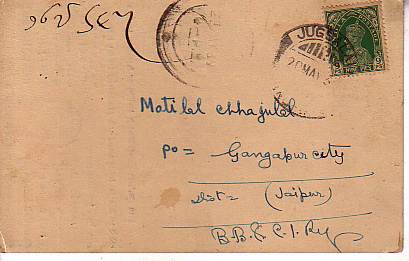 JUGS
20MAY
Motilal chhajulal
Po = Gangapur city
Dist = (Jaipur)
B.B. & C.I. Ry